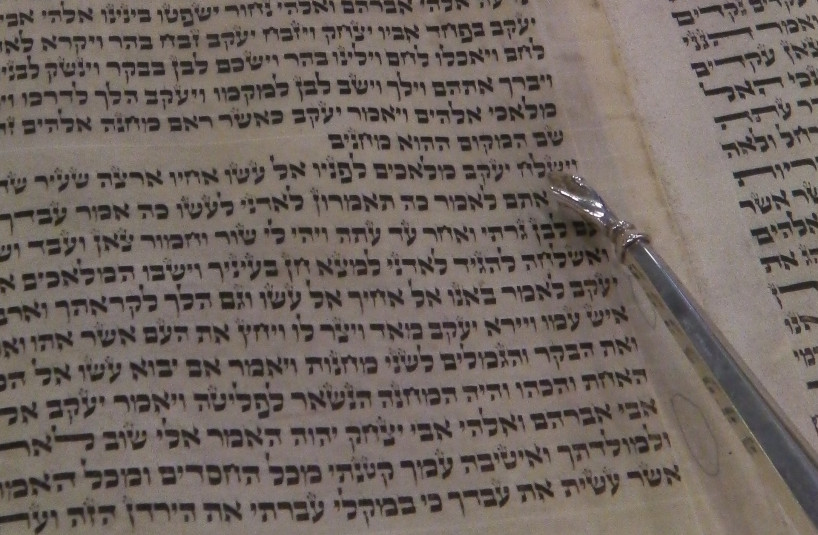 נקדים
ויאמר הנני
עקדים
עתה
רחל ולאה
אשר
אלהים
את
אלהי אברהם ואלהי נחור ישפטו בינינו אלהי
יעקב בפחד אביו יצחק ויזבח יעקב זבח בהר ויקרא
לחם ויאכלו לחם וילינו בהר וישכם לבן בבקר וינשק
ויברך אתהם וילך וישב לבן למקמו ויעקב הלך לדרכו
מלאכי אלהים ויאמר יעקב כאשר ראם מחנה אלהים
שם המקום ההוא מחנים
וישלח יעקב מלאכים לפניו אל עשו אחיו ארצה שעיר
אתם לאמר כה תאמרון לאדני לעשו כה אמר עבדך
עם לבן גרתי ואחר עד עתה ויהי לי שור וחמור צאן ועבד
ואשלחה להגיד לאדני למצא חן בעיניך וישבו המלאכים
יעקב לאמר באנו אל אחיך אל עשו וגם הלך לקראתך
איש עמו ויירא יעקב מאד ויצר לו ויחץ את העם אשר אתו
ואת הבקר והגמלים לשני מחנות ויאמר אם יבוא עשו אל
האחת והכהו והיה המחנה הנשאר לפליטה ויאמר יעקב
אבי אברהם ואלהי אבי יצחק יהוה האמר אלי שוב
ולמולדתך ואיטיבה עמך קטנתי מכל החסדים ומכל
אשר עשית את עבדך כי במקלי עברתי את הירדן הזה